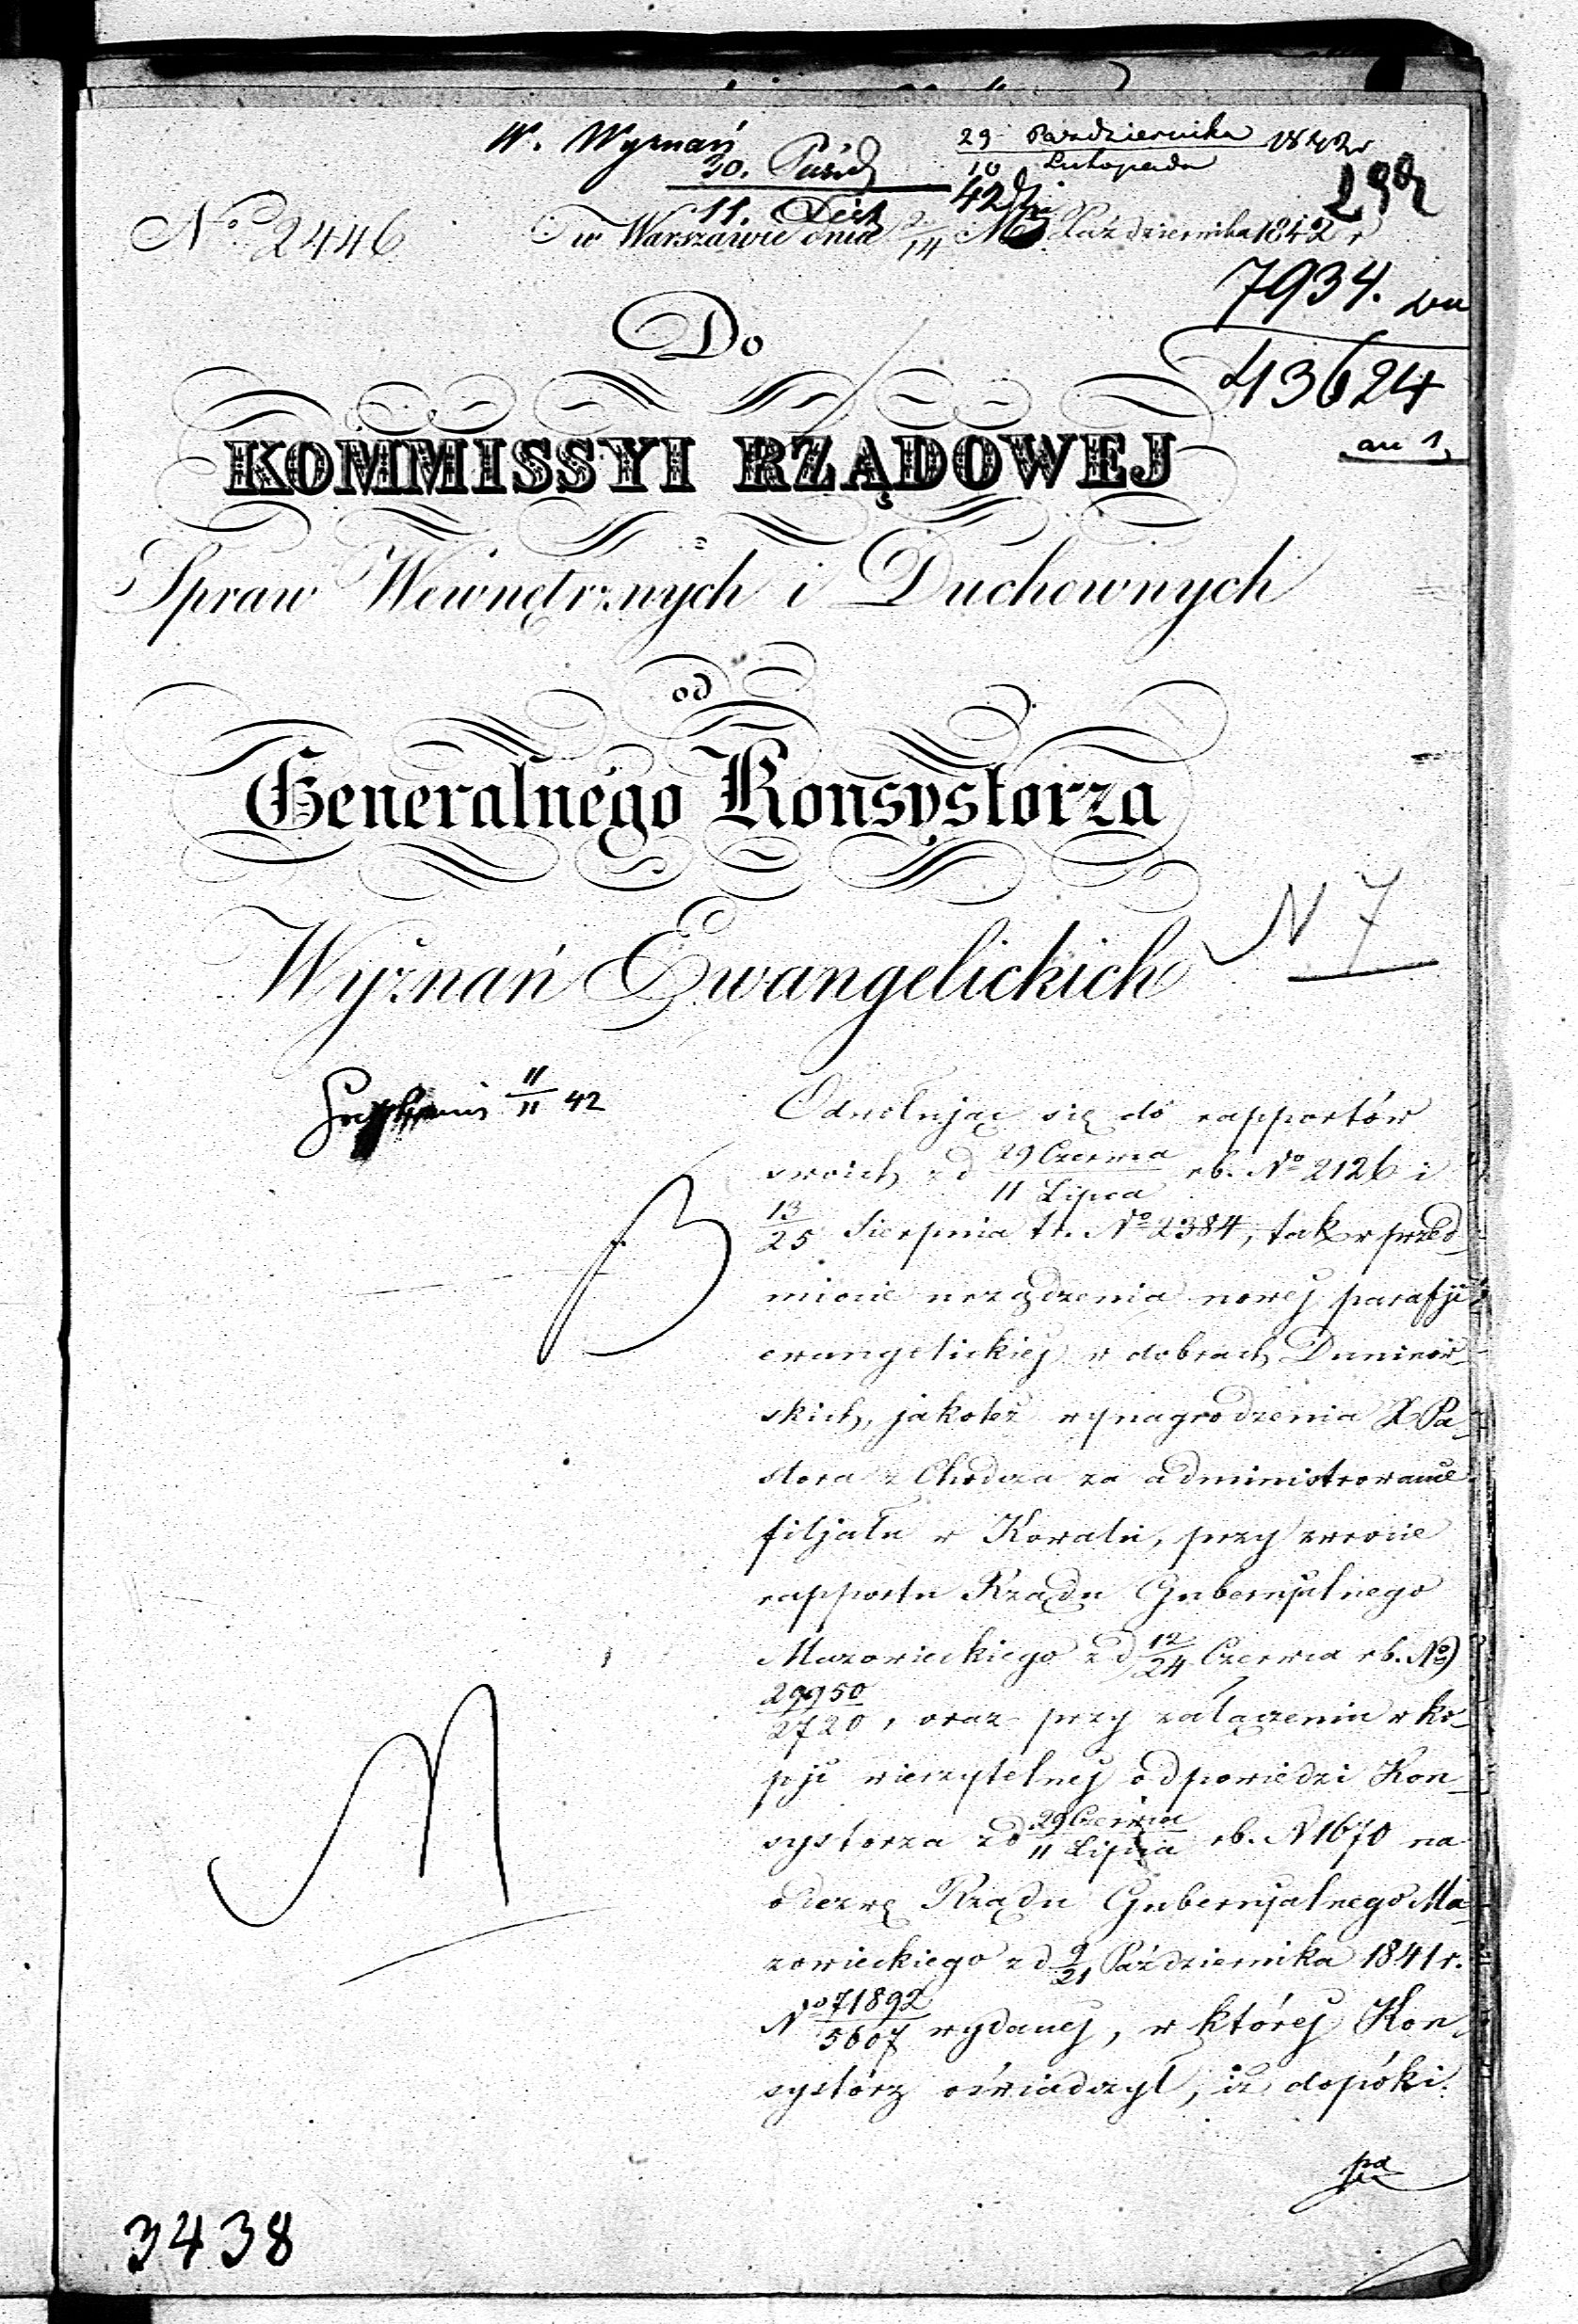 W. Wyznań
29 Października 1842 r
10 Listopada
30. Paźdz
11. 42
298
No. 2446
w Warszawie dnia 2/14 M. Października 1842 r
7934.
Do
43624
KOMMISSYI RZĄDOWEJ
Spraw Wewnętrznych i Duchownych
od
Generalnego Konsystorza
N 7
Wyznań Ewangelickich
11/11 42
Odwołując się do rapportów
swoich z d 29 Czerwca/11 Lipca rb. No 2126 i
13/25 Sierpnia t.r. No 2384, tak w przed-
miocie urządzenia nowej parafji
ewangelickiej w dobrach Duninow-
skich, jakoteż wynagrodzenia X Pa-
stora z Chodcza za administrowanie
filjału w Kowalu, przy zwrocie
rapportu Rządu Gubernjalnego
Mazowieckiego z d 12/24 Czerwca rb. No
29950/2720, oraz przy załączeniu w ko-
pji wierzytelnej odpowiedzi Kon-
systorza z d 29 Czerwca/11 Lipca rb. N 1670 na
odezwę Rządu Gubernjalnego Ma-
zowieckiego z d 9/21 Października 1841 r.
No 71892/5607 wydanej, w której Kon-
systorz oświadczył, iż dopóki
3438